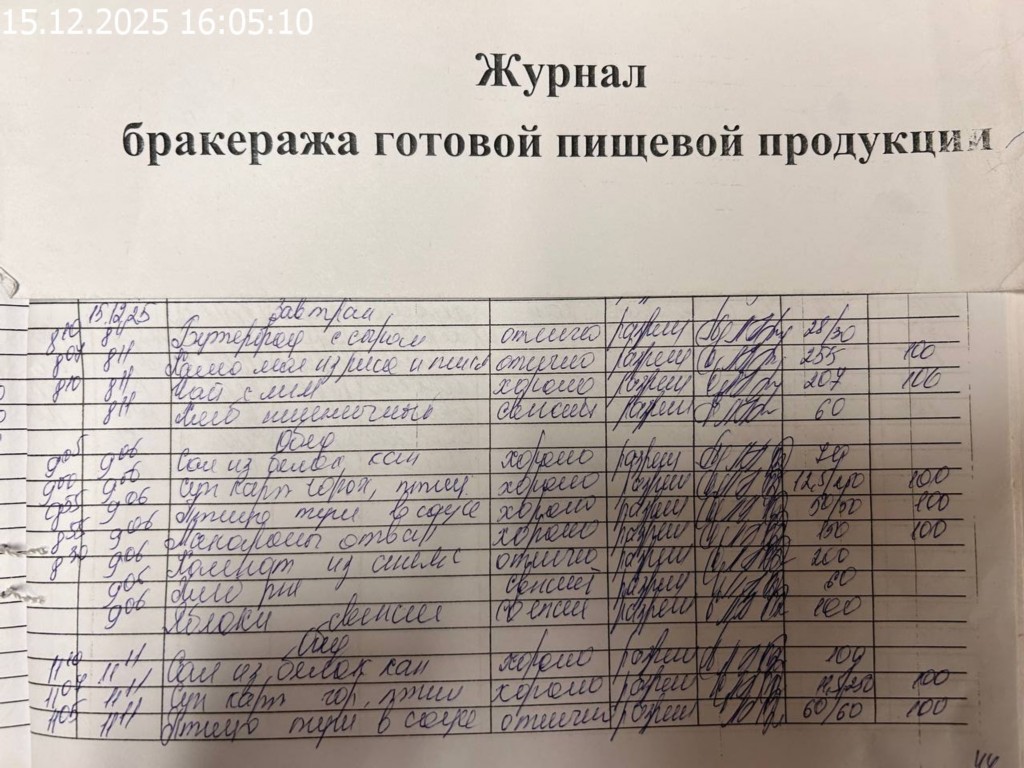 15.12.2025 16:05:10
Журнал
бракеража готовой пищевой продукции
15.12.25 Завтрак
8 10 8 11 Бутерброд с сыром отлично разреш 28/30
8 09 8 11 Каша мол из риса и пшена отлично разреш 255 100
8 10 8 11 Чай с лим хорошо разреш 207 100
8 11 Хлеб пшеничный свежий разреш 60
Обед
9 05 9 06 Сал из белок кап хорошо разреш
9 00 9 06 Суп карт горох, птиц хорошо разреш 100
8 55 9 06 Птица туш в соусе хорошо разреш 100
8 55 9 06 Макароны отвар хорошо разреш 150 100
8 30 9 06 Компот из отлично разреш 200
9 06 Хлеб рж свежий разреш 60
9 06 Яблоки свежие свежий разреш 100
Обед
11 10 11 11 Сал из белок кап хорошо разреш
11 07 11 11 Суп карт гор, птиц хорошо разреш 100
11 05 11 11 Птица туш в соусе отлично разреш 60/60 100
44